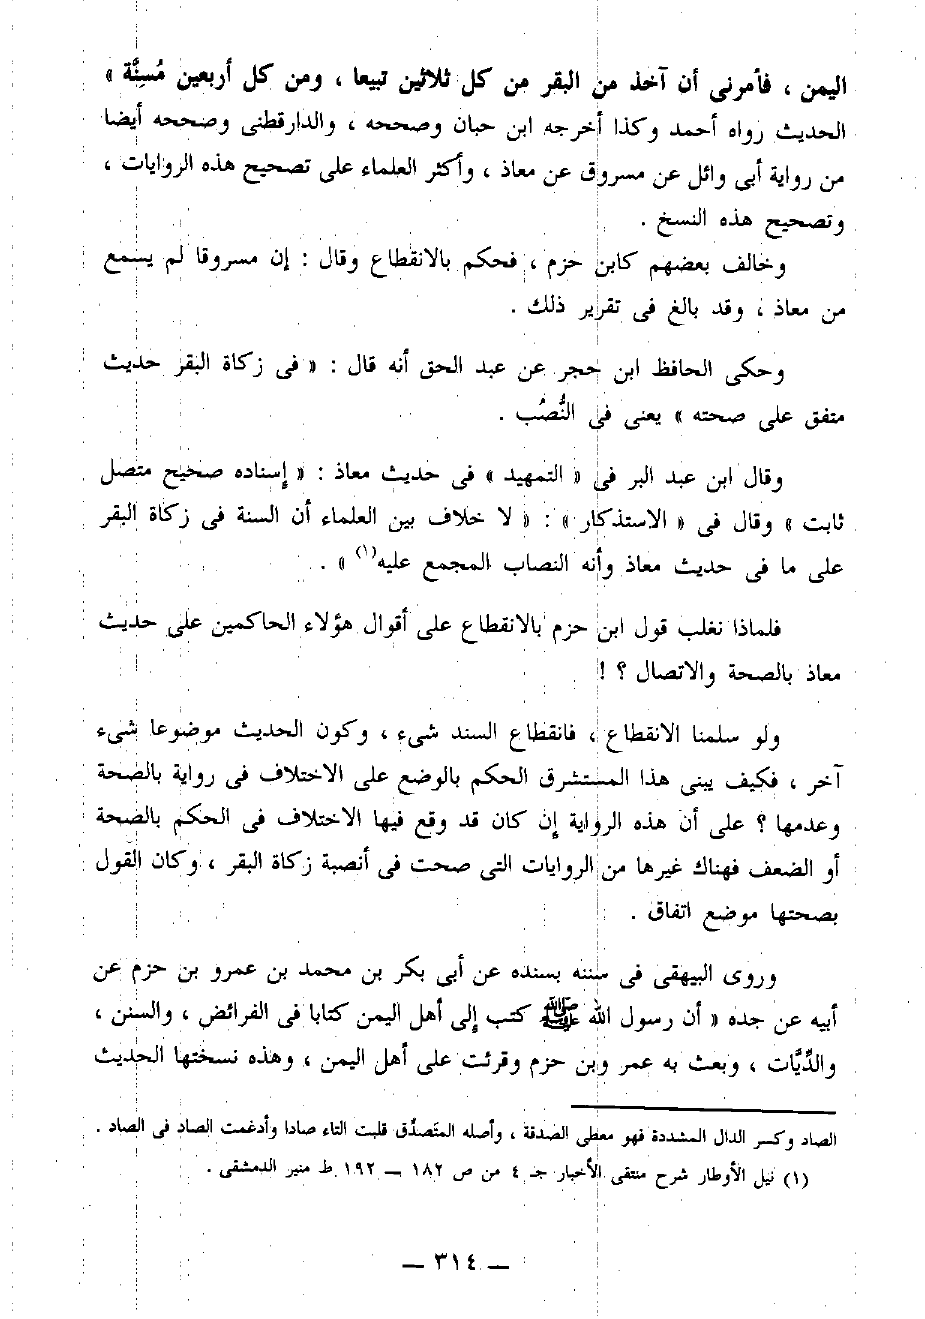 اليمن ، فأمرنى أن آخذ من البقر من كل ثلاثين تبيعا ، ومن كل أربعين مُسِنَّة »
الحديث رواه أحمد وكذا أخرجه ابن حبان وصححه ، والدارقطنى وصححه أيضا
من رواية أبى وائل عن مسروق عن معاذ ، وأكثر العلماء على تصحيح هذه الروايات ،
وتصحيح هذه النسخ .
وخالف بعضهم كابن حزم ، فحكم بالانقطاع وقال : إن مسروقا لم يسمع
من معاذ ، وقد بالغ فى تقرير ذلك .
وحكى الحافظ ابن حجر عن عبد الحق أنه قال : « فى زكاة البقر حديث
متفق على صحته » يعنى فى النُّصُب .
وقال ابن عبد البر فى « التمهيد » فى حديث معاذ : « إسناده صحيح متصل
ثابت » وقال فى « الاستذكار » : « لا خلاف بين العلماء أن السنة فى زكاة البقر
على ما فى حديث معاذ وأنه النصاب المجمع عليه(١) » .
فلماذا نغلب قول ابن حزم بالانقطاع على أقوال هؤلاء الحاكمين على حديث
معاذ بالصحة والاتصال ؟ !
ولو سلمنا الانقطاع ، فانقطاع السند شىء ، وكون الحديث موضوعا شىء
آخر ، فكيف يبنى هذا المستشرق الحكم بالوضع على الاختلاف فى رواية بالصحة
وعدمها ؟ على أن هذه الرواية إن كان قد وقع فيها الاختلاف فى الحكم بالصحة
أو الضعف فهناك غيرها من الروايات التى صحت فى أنصبة زكاة البقر ، وكان القول
بصحتها موضع اتفاق .
وروى البيهقى فى سننه بسنده عن أبى بكر بن محمد بن عمرو بن حزم عن
أبيه عن جده « أن رسول الله ﷺ كتب إلى أهل اليمن كتابا فى الفرائض ، والسنن ،
والدِّيَّات ، وبعث به عمر وبن حزم وقرئت على أهل اليمن ، وهذه نسختها الحديث
الصاد وكسر الدال المشددة فهو معطى الصدقة ، وأصله المتَصدِّق قلبت التاء صادا وأدغمت الصاد فى الصاد .
(١) نيل الأوطار شرح منتقى الأخبار جـ ٤ من ص ١٨٢ — ١٩٢ ط منير الدمشقى .
— ٣١٤ —